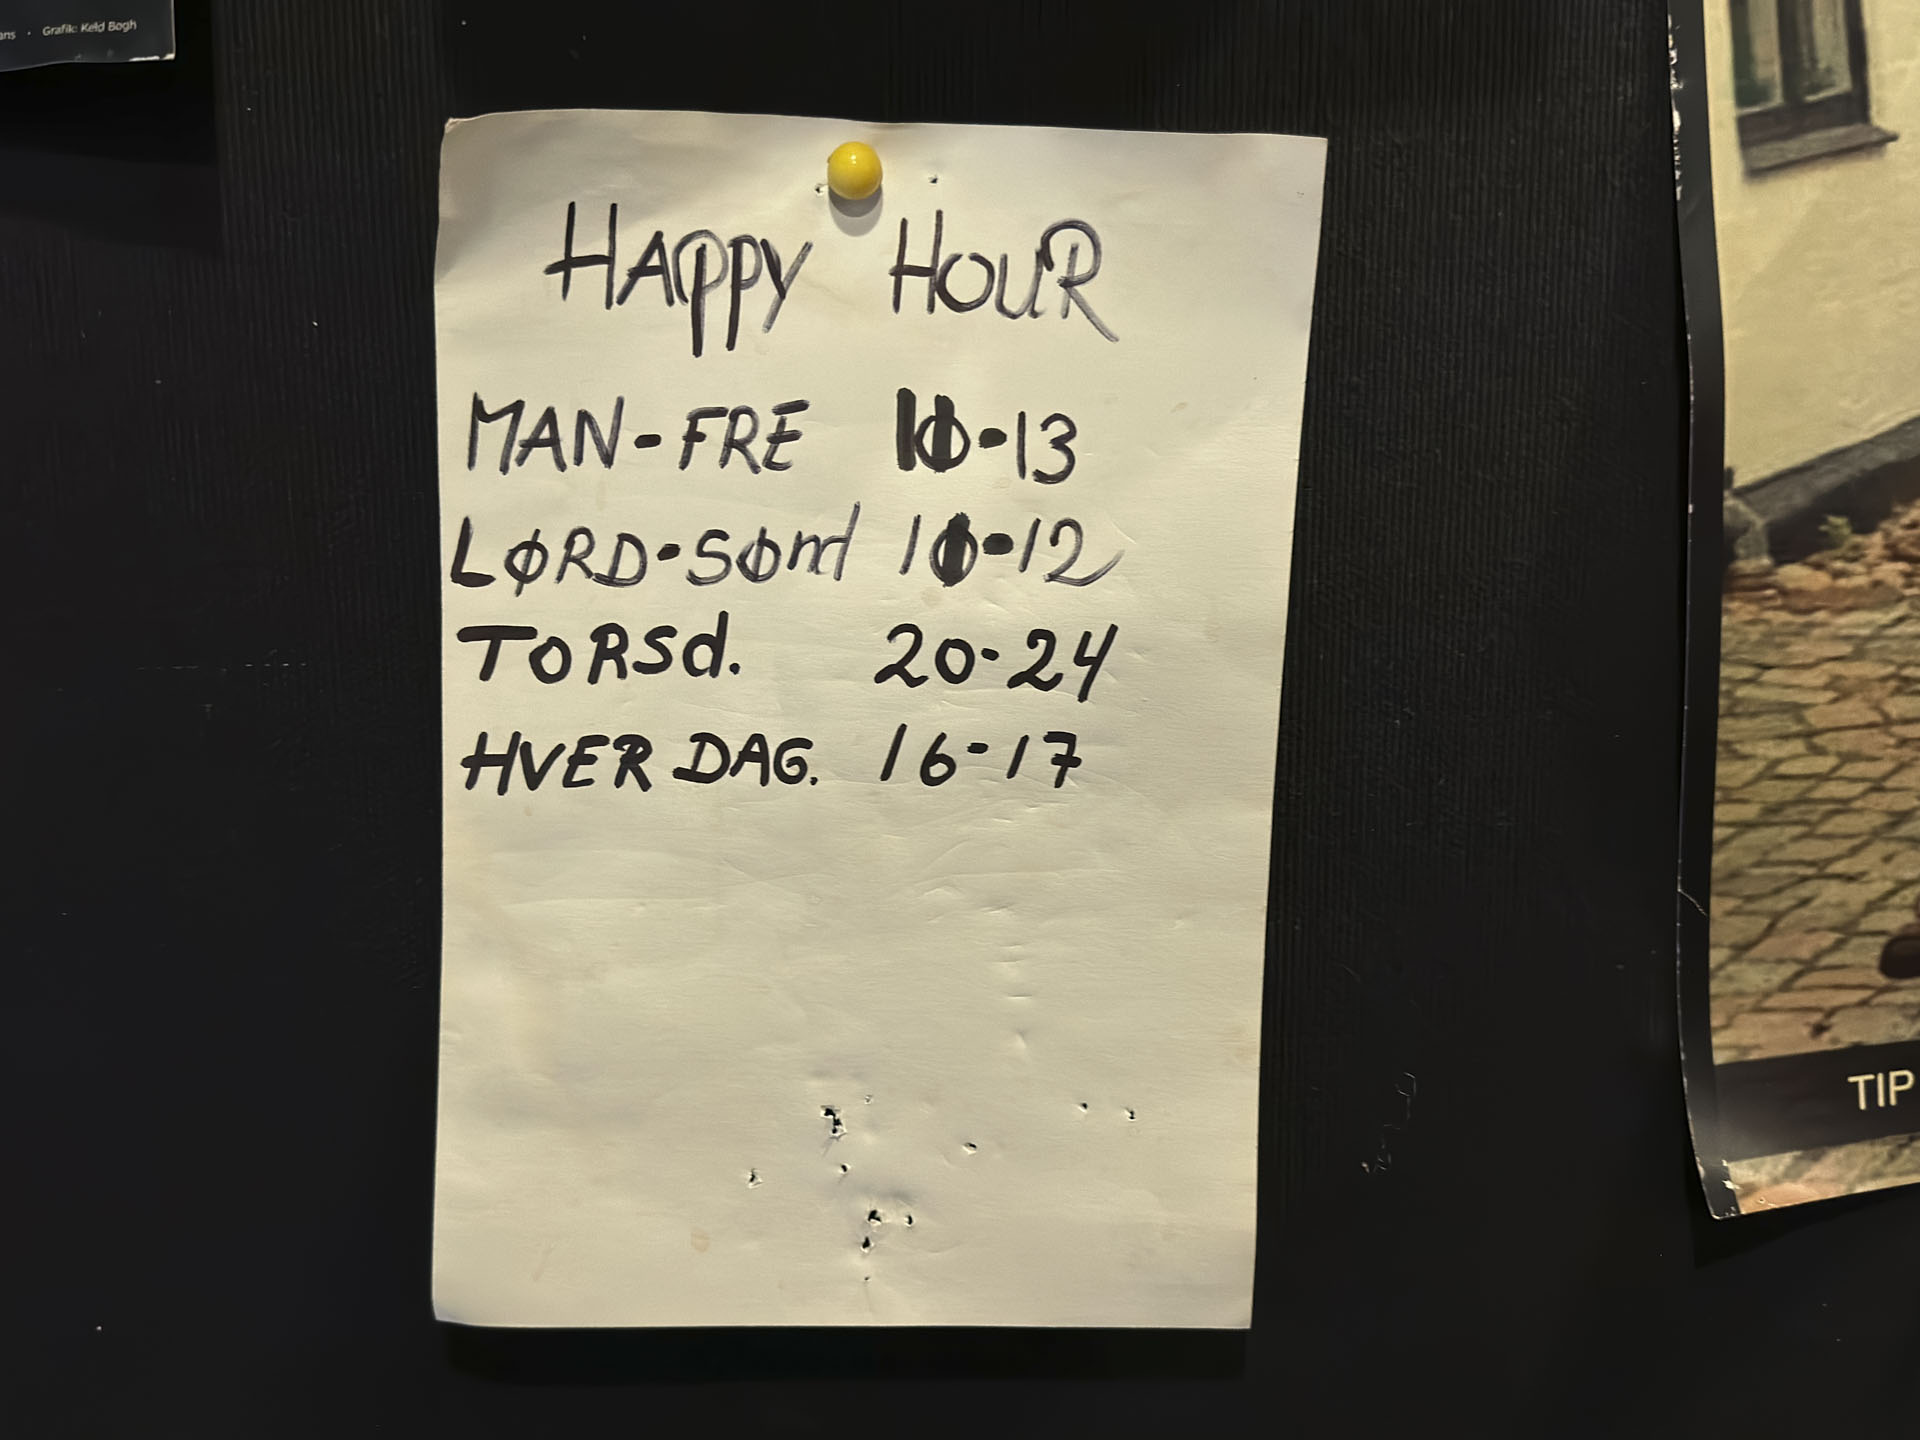 ans · Grafik: Keld Bøgh
HAPPY HOUR
MAN-FRE 11-13
LØRD-SØND 11-12
TORSD. 20-24
HVER DAG. 16-17
TIP